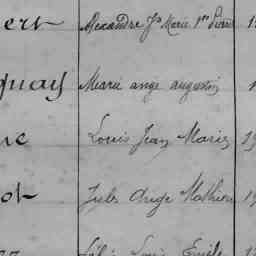 ert Alexandre Jn Marie Pre Pierre 1
quay Marie ange augustin
ne Louis Jean Marie 19
ot Jules Ange Mathieu 19
Louis Émile